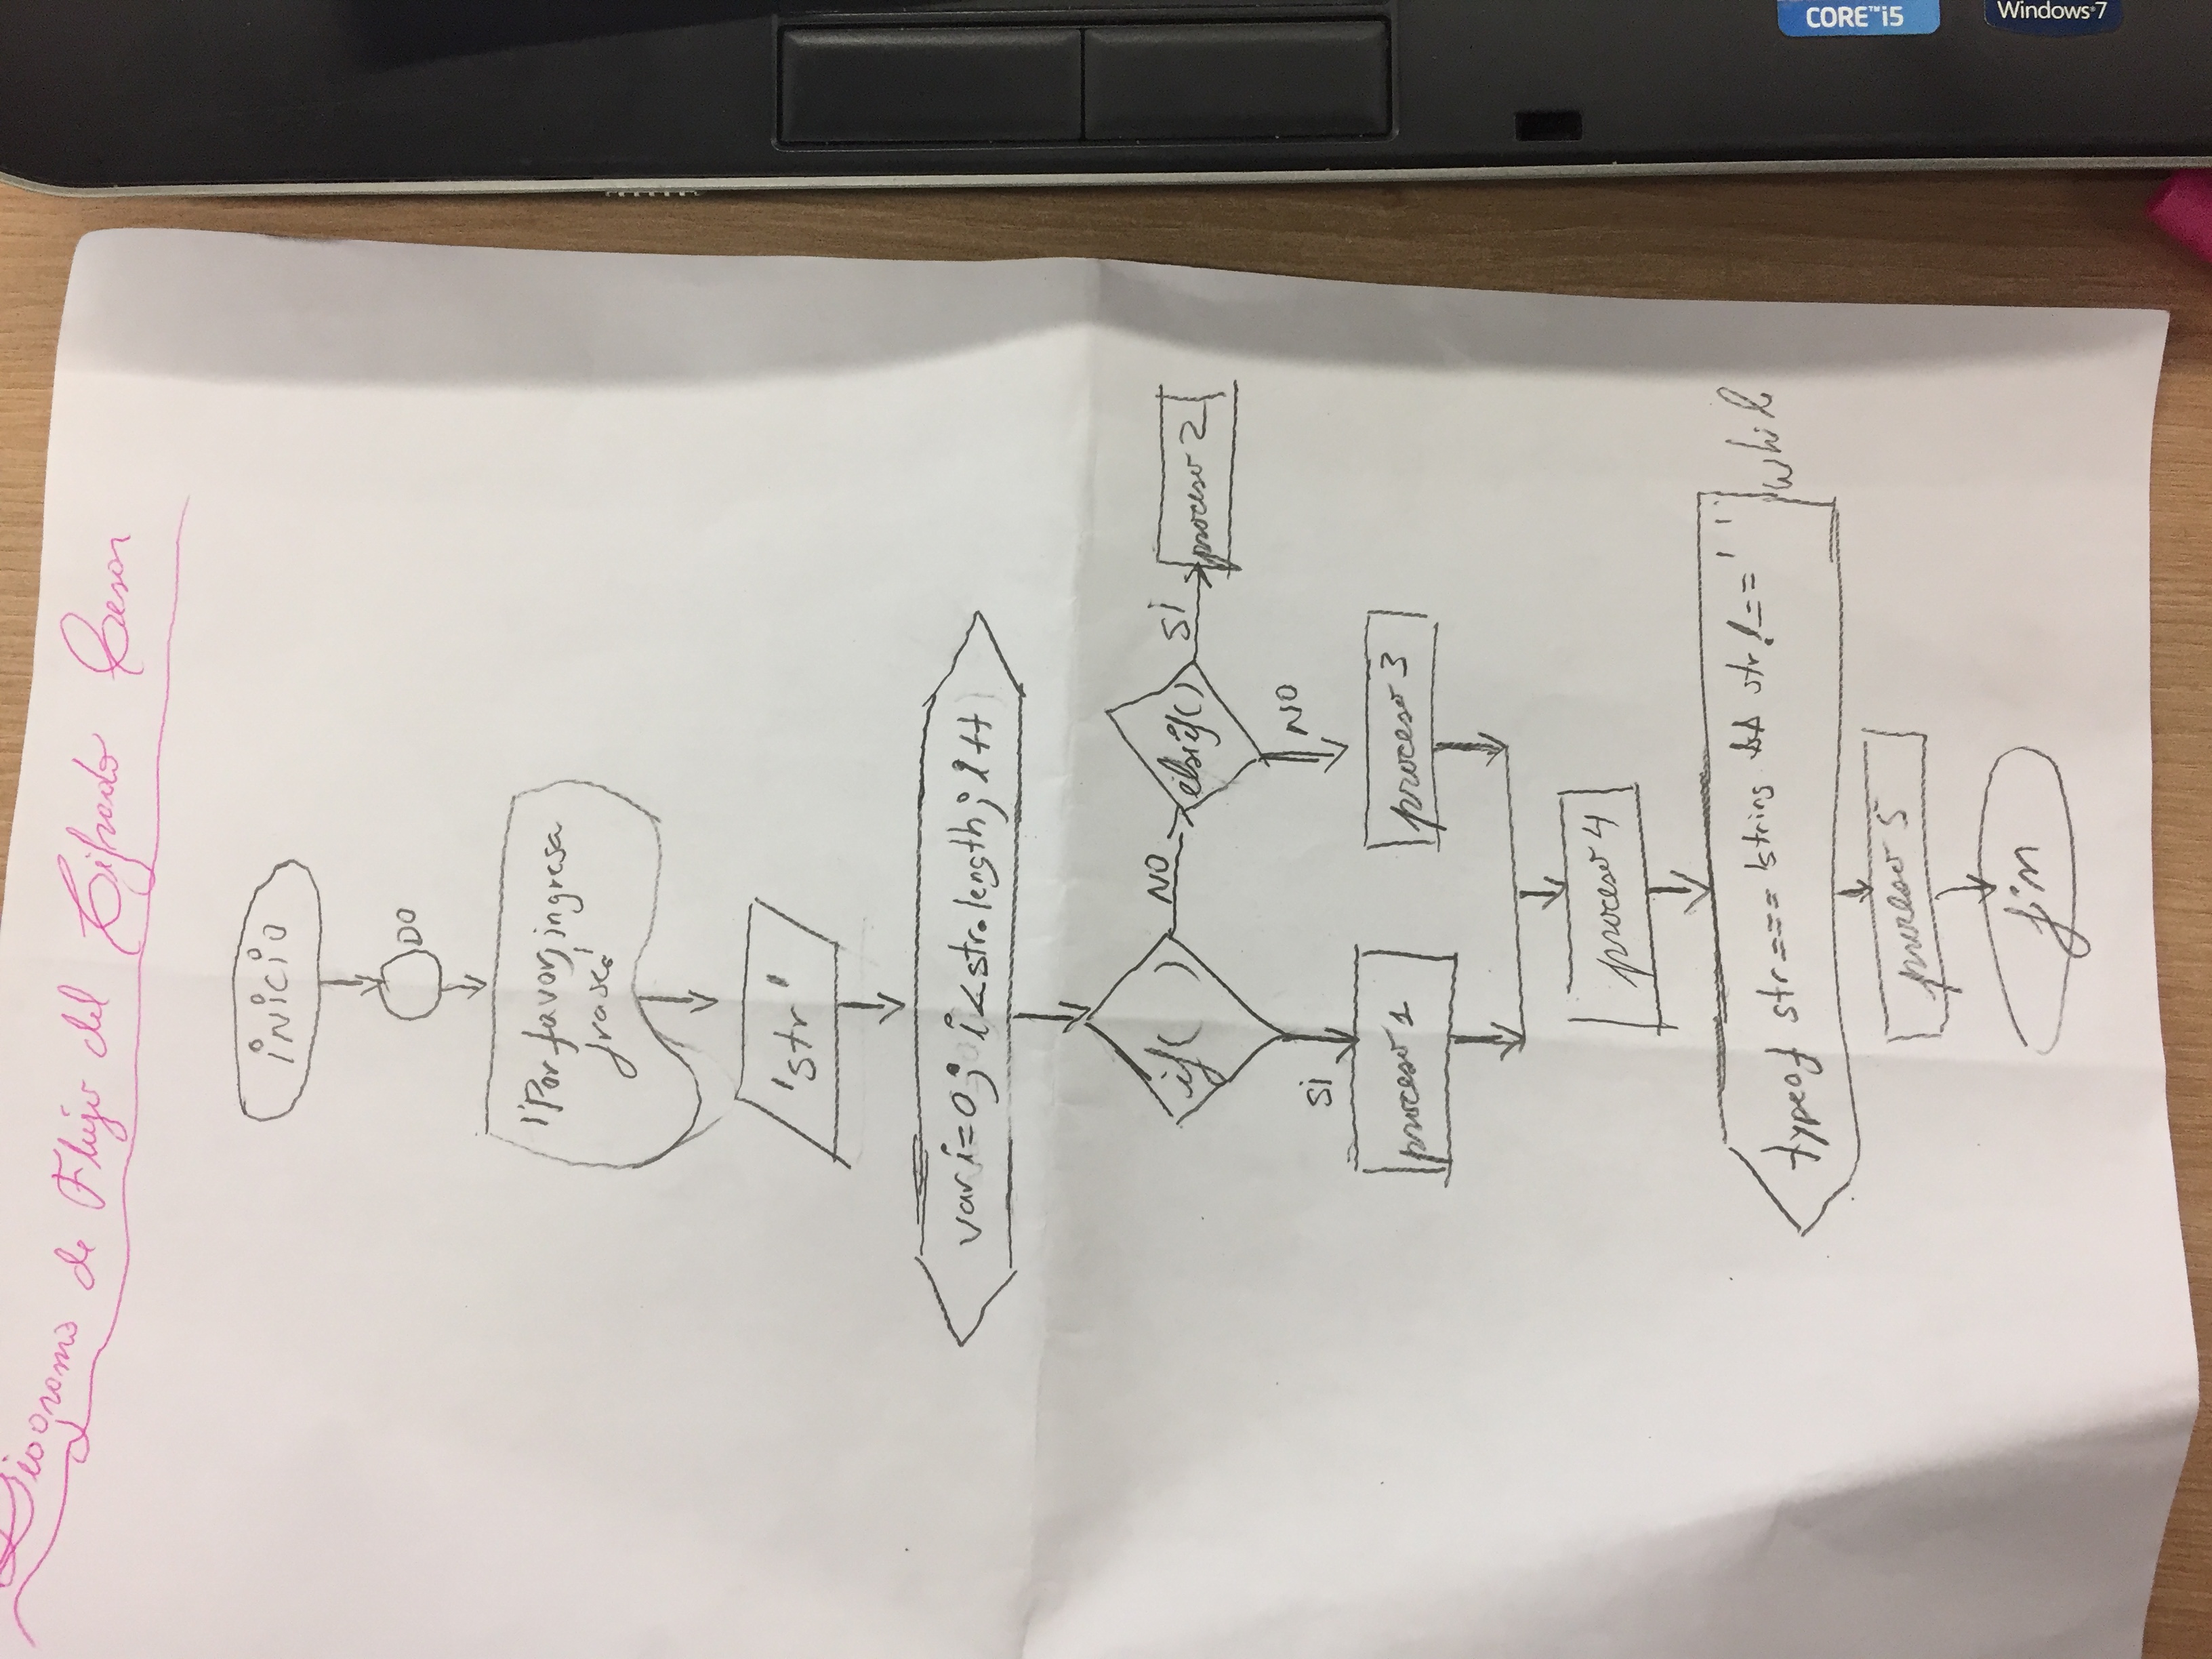 Diagrama de Flujo del Cifrado Cesar
inicio
DO
'Por favor, ingresa
frase.'
'str'
var i=0; i<str.length; i++
if( )
NO
elseif()
SI
proceso 2
SI
NO
proceso 1
proceso 3
proceso 4
typeof str === 'string && str !== ' '
while
proceso 5
fin
CORE™ i5
Windows® 7